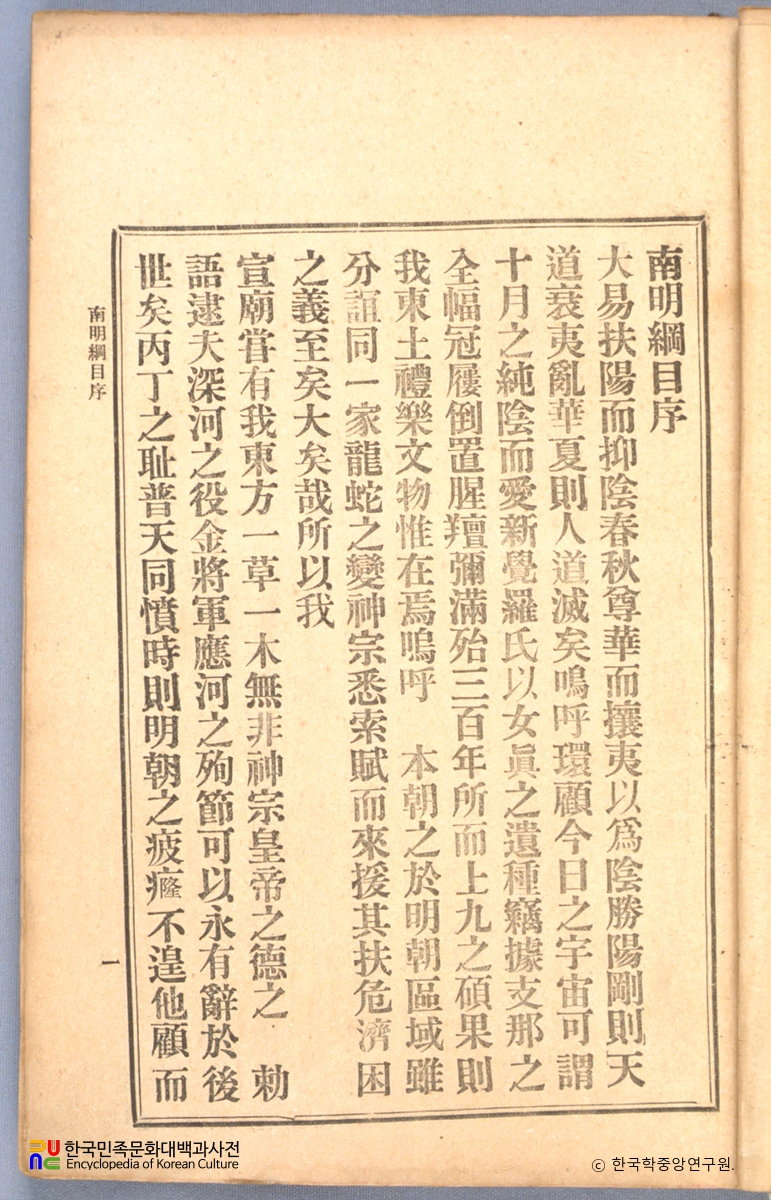 南明綱目序
大易扶陽而抑陰春秋尊華而攘夷以爲陰勝陽剛則天
道衰夷亂華夏則人道滅矣嗚呼環顧今日之宇宙可謂
十月之純陰而愛新覺羅氏以女眞之遺種竊據支那之
全幅冠屨倒置腥羶彌滿殆三百年所而上九之碩果則
我東土禮樂文物惟在焉嗚呼　本朝之於明朝區域雖
分誼同一家龍蛇之變神宗悉索賦而來援其扶危濟困
之義至矣大矣哉所以我
宣廟嘗有我東方一草一木無非神宗皇帝之德之　勅
語逮夫深河之役金將軍應河之殉節可以永有辭於後
世矣丙丁之耻普天同憤時則明朝之疲癃不遑他顧而
南明綱目序
一
한국민족문화대백과사전
Encyclopedia of Korean Culture
© 한국학중앙연구원.